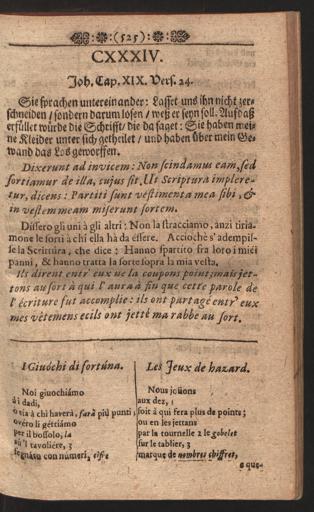 (525)
CXXXIV.
Joh. Cap. XIX. Vers. 24.
Sie sprachen untereinander: Lasset uns ihn nicht zer-
schneiden / sondern darum losen / weß er seyn soll. Auf daß
erfüllet würde die Schrifft / die da saget: Sie haben mei-
ne Kleider unter sich getheilet / und haben über mein Ge-
wand das Los geworffen.
Dixerunt ad invicem: Non scindamus eam, sed
sortiamur de illa, cujus sit, Ut Scriptura implere-
tur, dicens: Partiti sunt vestimenta mea sibi, &
in vestem meam miserunt sortem.
Dissero gli uni à gli altri: Non la stracciamo, anzi tiria-
mone le sorti à chi ella hà da essere. Acciochè s'adempis-
se la Scrittura, che dice: Hanno spartito fra loro i miei
panni, & hanno tratta la sorte sopra la mia vesta.
Ils dirent entr' eux ne la coupons point; mais jet-
tons au sort à qui l' aura à fin que cette parole de
l' écriture fut accomplie: ils ont partagé entr' eux
mes vêtemens et ils ont jetté ma robbe au sort.
I Giuóchi di fortúna.
Noi giuochiámo
á i dadi,
o sia à chi haverà, farà più punti;
ovéro li gettiámo
per il bossolo, 1a
sù 'l tavoliére, 3
segnáto con númeri,
Les Jeux de hazard.
Nous joüons
aux dez, 1
soit à qui fera plus de points;
ou en les jettans
par la tournelle 2 le gobelet
sur le tablier, 3
marqué de nombres chiffrez,
e que-